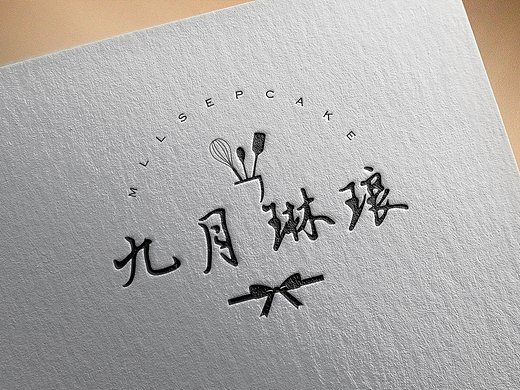 MLLSEPCAKE
九月琳琅